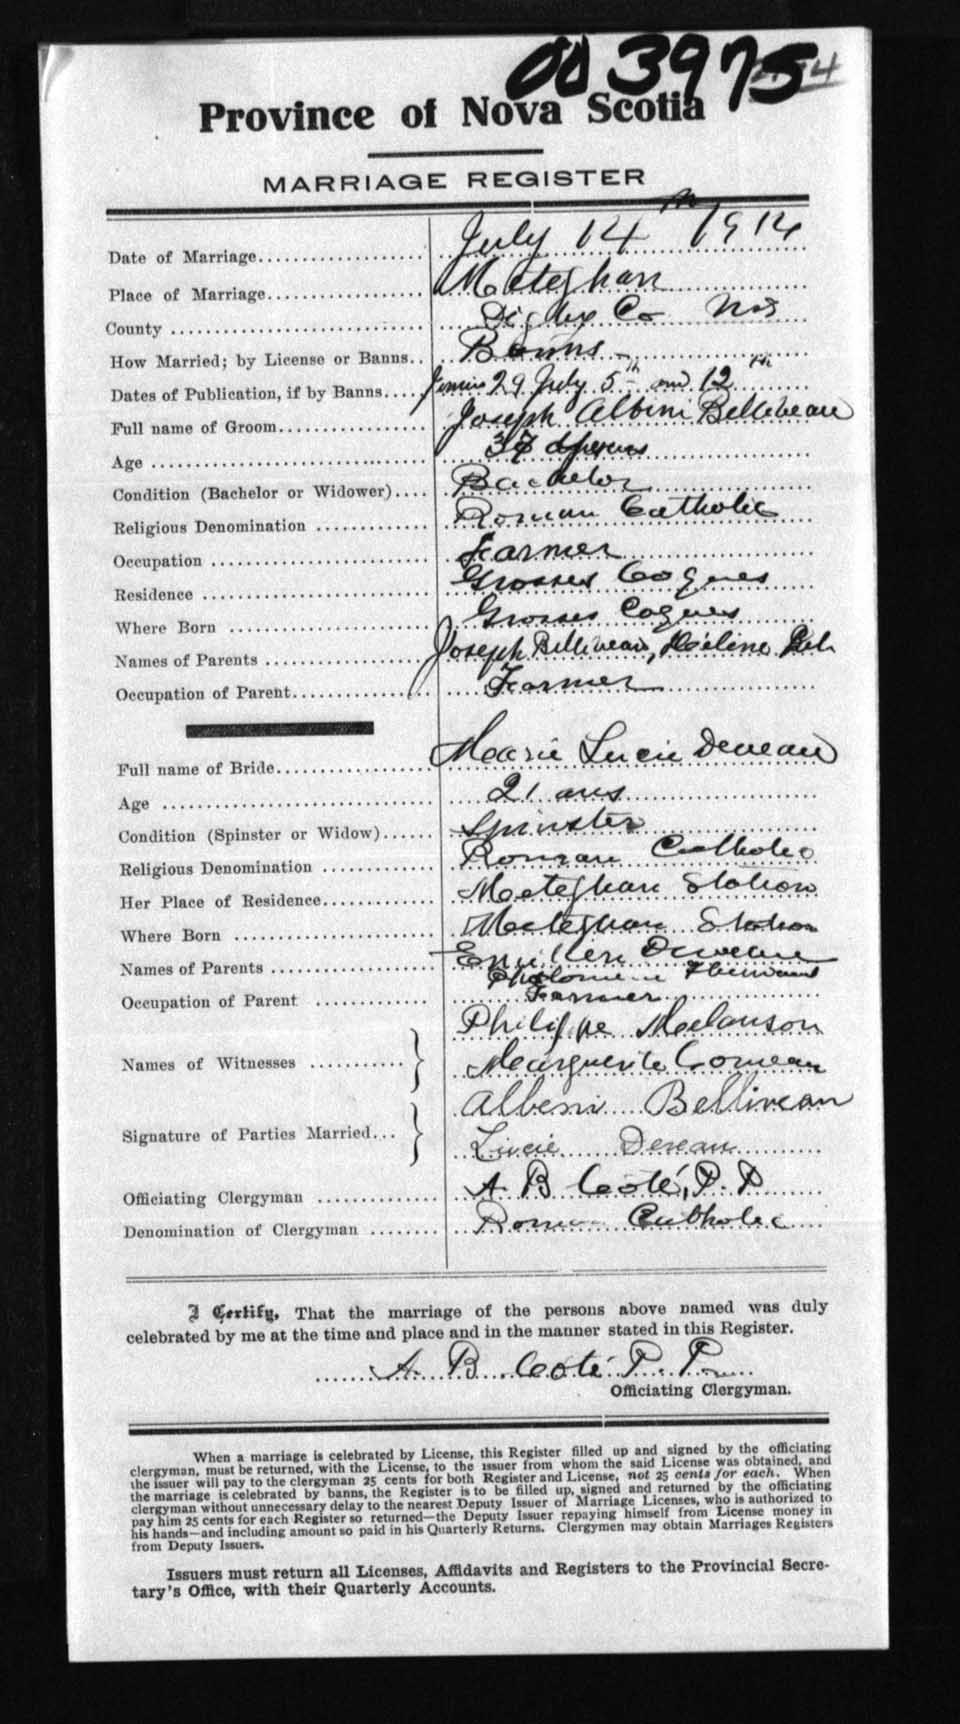 003975
Province of Nova Scotia
MARRIAGE REGISTER
Date of Marriage July 14th 1914
Place of Marriage Meteghan
County Digby Co N.S
How Married; by License or Banns Banns
Dates of Publication, if by Banns 29 July 5th and 12th
Full name of Groom Joseph Albini Belliveau
Age 37
Condition (Bachelor or Widower) Bachelor
Religious Denomination Roman Catholic
Occupation Farmer
Residence Grosses Coques
Where Born Grosses Coques
Names of Parents Joseph Belliveau, Hélène Bel.
Occupation of Parent Farmer
Full name of Bride Marie Lucie Deveau
Age 21 ans
Condition (Spinster or Widow) Spinster
Religious Denomination Roman Catholic
Her Place of Residence Meteghan Station
Where Born Meteghan Station
Names of Parents Deveau
Occupation of Parent Farmer
Names of Witnesses Philippe Melanson
Marguerite Comeau
Signature of Parties Married Albeni Belliveau
Lucie Deveau
Officiating Clergyman A B Coté, P. P
Denomination of Clergyman Roman Catholic
I Certify, That the marriage of the persons above named was duly
celebrated by me at the time and place and in the manner stated in this Register.
A. B. Coté P. P.
Officiating Clergyman.
When a marriage is celebrated by License, this Register filled up and signed by the officiating
clergyman, must be returned, with the License, to the issuer from whom the said License was obtained, and
the issuer will pay to the clergyman 25 cents for both Register and License, not 25 cents for each. When
the marriage is celebrated by banns, the Register is to be filled up, signed and returned by the officiating
clergyman without unnecessary delay to the nearest Deputy Issuer of Marriage Licenses, who is authorized to
pay him 25 cents for each Register so returned—the Deputy Issuer repaying himself from License money in
his hands—and including amount so paid in his Quarterly Returns. Clergymen may obtain Marriages Registers
from Deputy Issuers.
Issuers must return all Licenses, Affidavits and Registers to the Provincial Secre-
tary's Office, with their Quarterly Accounts.